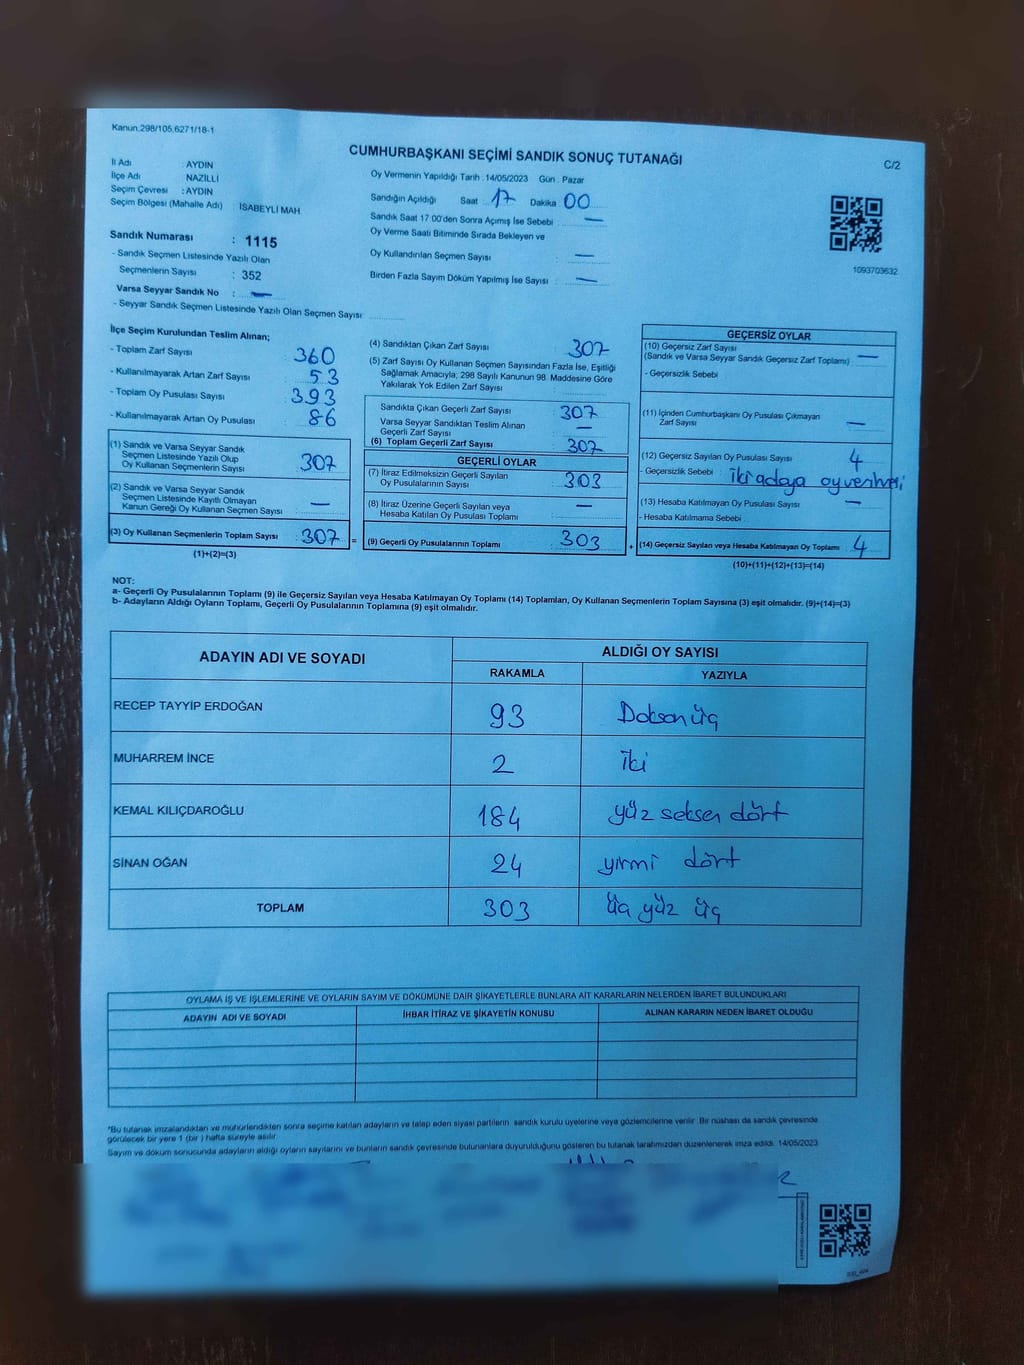 Kanun.298/105,6271/18-1
CUMHURBAŞKANI SEÇİMİ SANDIK SONUÇ TUTANAĞI
C/2
İl Adı : AYDIN
İlçe Adı NAZİLLİ
Seçim Çevresi : AYDIN
Seçim Bölgesi (Mahalle Adı) : İSABEYLİ MAH
Oy Vermenin Yapıldığı Tarih : 14/05/2023 Gün : Pazar
Sandığın Açıldığı Saat 17 Dakika 00
Sandık Saat 17:00'den Sonra Açımış İse Sebebi : —
Oy Verme Saati Bitiminde Sırada Bekleyen ve
Oy Kullandırılan Seçmen Sayısı : —
Birden Fazla Sayım Döküm Yapılmış İse Sayısı : —
1093703632
Sandık Numarası : 1115
- Sandık Seçmen Listesinde Yazılı Olan
Seçmenlerin Sayısı : 352
Varsa Seyyar Sandık No : —
- Seyyar Sandık Seçmen Listesinde Yazılı Olan Seçmen Sayısı
İlçe Seçim Kurulundan Teslim Alınan;
- Toplam Zarf Sayısı : 360
- Kullanılmayarak Artan Zarf Sayısı : 53
- Toplam Oy Pusulası Sayısı : 393
- Kullanılmayarak Artan Oy Pusulası : 86
(1) Sandık ve Varsa Seyyar Sandık
Seçmen Listesinde Yazılı Olup
Oy Kullanan Seçmenlerin Sayısı : 307
(2) Sandık ve Varsa Seyyar Sandık
Seçmen Listesinde Kayıtlı Olmayan
Kanun Gereği Oy Kullanan Seçmen Sayısı : —
(3) Oy Kullanan Seçmenlerin Toplam Sayısı : 307 =
(1)+(2)=(3)
(4) Sandıktan Çıkan Zarf Sayısı 307
(5) Zarf Sayısı Oy Kullanan Seçmen Sayısından Fazla İse, Eşitliği
Sağlamak Amacıyla; 298 Sayılı Kanunun 98. Maddesine Göre
Yakılarak Yok Edilen Zarf Sayısı
Sandıkta Çıkan Geçerli Zarf Sayısı : 307
Varsa Seyyar Sandıktan Teslim Alınan
Geçerli Zarf Sayısı : —
(6) Toplam Geçerli Zarf Sayısı : 307
GEÇERLİ OYLAR
(7) İtiraz Edilmeksizin Geçerli Sayılan
Oy Pusulalarının Sayısı : 303
(8) İtiraz Üzerine Geçerli Sayılan veya
Hesaba Katılan Oy Pusulası Toplamı : —
(9) Geçerli Oy Pusulalarının Toplamı : 303 +
GEÇERSİZ OYLAR
(10) Geçersiz Zarf Sayısı
(Sandık ve Varsa Seyyar Sandık Geçersiz Zarf Toplamı) —
- Geçersizlik Sebebi :
(11) İçinden Cumhurbaşkanı Oy Pusulası Çıkmayan
Zarf Sayısı —
(12) Geçersiz Sayılan Oy Pusulası Sayısı : 4
- Geçersizlik Sebebi : iki adaya oy verilmesi
(13) Hesaba Katılmayan Oy Pusulası Sayısı : —
- Hesaba Katılmama Sebebi
(14) Geçersiz Sayılan veya Hesaba Katılmayan Oy Toplamı : 4
(10)+(11)+(12)+(13)=(14)
NOT:
a- Geçerli Oy Pusulalarının Toplamı (9) ile Geçersiz Sayılan veya Hesaba Katılmayan Oy Toplamı (14) Toplamları, Oy Kullanan Seçmenlerin Toplam Sayısına (3) eşit olmalıdır. (9)+(14)=(3)
b- Adayların Aldığı Oyların Toplamı, Geçerli Oy Pusulalarının Toplamına (9) eşit olmalıdır.
ADAYIN ADI VE SOYADI
ALDIĞI OY SAYISI
RAKAMLA YAZIYLA
RECEP TAYYİP ERDOĞAN 93 Doksan üç
MUHARREM İNCE 2 iki
KEMAL KILIÇDAROĞLU 184 yüz seksen dört
SİNAN OĞAN 24 yirmi dört
TOPLAM 303 üç yüz üç
OYLAMA İŞ VE İŞLEMLERİNE VE OYLARIN SAYIM VE DÖKÜMÜNE DAİR ŞİKAYETLERLE BUNLARA AİT KARARLARIN NELERDEN İBARET BULUNDUKLARI
ADAYIN ADI VE SOYADI İHBAR İTİRAZ VE ŞİKAYETİN KONUSU ALINAN KARARIN NEDEN İBARET OLDUĞU
*Bu tutanak imzalandıktan ve mühürlendikten sonra seçime katılan adayların ve talep eden siyasi partilerin sandık kurulu üyelerine veya gözlemcilerine verilir. Bir nüshası da sandık çevresinde
görülecek bir yere 1 (bir) hafta süreyle asılır.
Sayım ve döküm sonucunda adayların aldığı oyların sayılarını ve bunların sandık çevresinde bulunanlara duyurulduğunu gösteren bu tutanak tarafımızdan düzenlenerek imza edildi. 14/05/2023